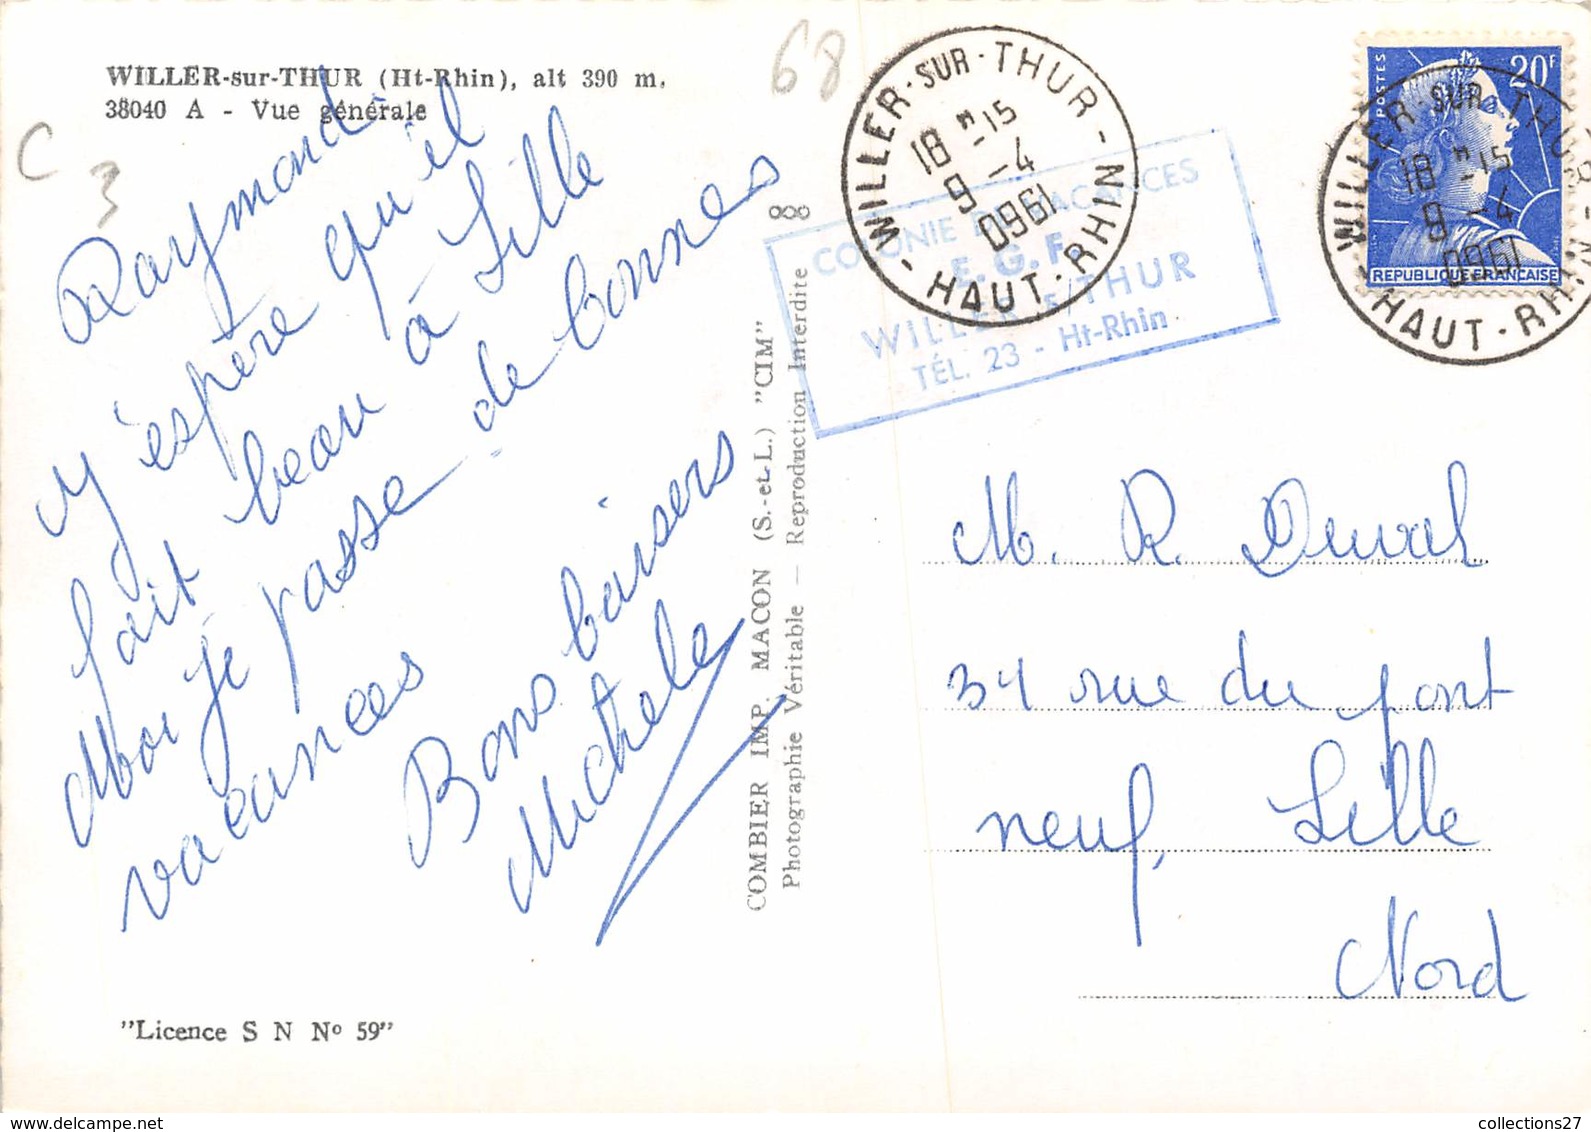 WILLER-sur-THUR (Ht-Rhin), alt 390 m.
38040 A - Vue générale
C
3
68
Raymond
j'espère qu'il
fait beau à Lille
Moi je passe de bonnes
vacances
Bons baisers
Michele
"Licence S N Nº 59"
COMBIER IMP. MACON (S.-et-L.) "CIM"
Photographie Véritable — Reproduction Interdite
WILLER-SUR-THUR - HAUT-RHIN
18 H -15
9 -4
1960
COLONIE DE VACANCES
E.G.F.
WILLER s/THUR
TÉL. 23 - Ht-Rhin
POSTES
20F
REPUBLIQUE FRANÇAISE
WILLER-SUR-THUR - HAUT-RHIN
18 H -15
9 -4
1960
M. R. Duval
34 rue du pont
neuf, Lille
Nord
collections27